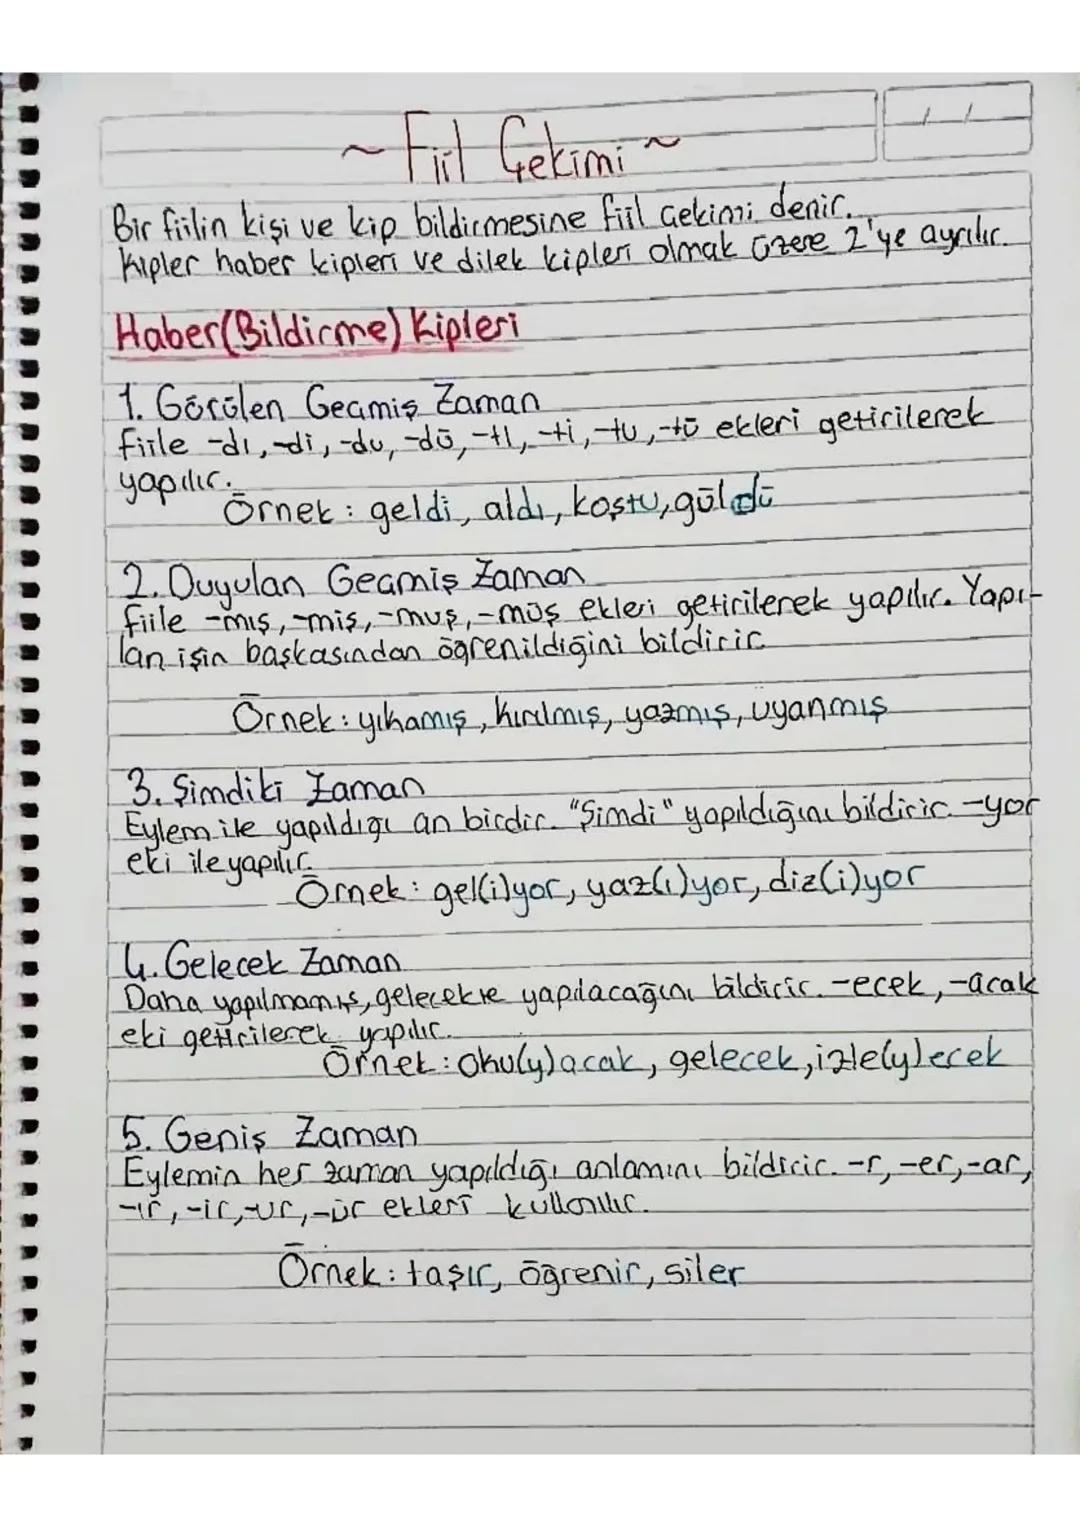 ~ Fiil Çekimi ~
/ /
Bir fiilin kişi ve kip bildirmesine fiil çekimi denir.
Kipler haber kipleri ve dilek kipleri olmak üzere 2'ye ayrılır.
Haber(Bildirme) Kipleri
1. Görülen Geçmiş Zaman
fiile -dı, -di, -du, -dü, -tı, -ti, -tu, -tü ekleri getirilerek
yapılır.
Örnek: geldi, aldı, koştu, güldü
2. Duyulan Geçmiş Zaman
fiile -mış, -miş, -muş, -müş ekleri getirilerek yapılır. Yapı-
lan işin başkasından öğrenildiğini bildirir.
Örnek: yıkamış, kırılmış, yazmış, uyanmış
3. Şimdiki Zaman
Eylem ile yapıldığı an birdir. "Şimdi" yapıldığını bildirir. -yor
eki ile yapılır.
Örnek: gel(i)yor, yaz(ı)yor, diz(i)yor
4. Gelecek Zaman
Daha yapılmamış, gelecekte yapılacağını bildirir. -ecek, -acak
eki getirilerek yapılır.
Örnek: oku(y)acak, gelecek, izle(y)ecek
5. Geniş Zaman
Eylemin her zaman yapıldığı anlamını bildirir. -r, -er, -ar,
-ır, -ir, -ur, -ür ekleri kullanılır.
Örnek: taşır, öğrenir, siler